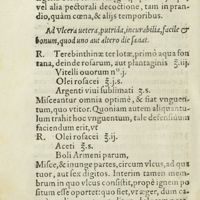 vel alia pectorali decoctione, tam in pran-
dio, quàm cœna, & alijs temporibus.
Ad vlcera vetera, putrida, incurabilia, facile &
bonum, quod vno aut altero die sanat.
R. Terebinthinæ ter lotæ, primò aqua fon
tana, deinde rosarum, aut plantaginis ℥.iij.
Vitelli ouorum n°.j.
Olei rosacei ℥.j.s.
Argenti viui sublimati ʒ.s.
Misceantur omnia optimè, & fiat vnguen-
tum, quo vtitor. Quoniam autem aliquanto
tulum hàc vnguentum induceret, idcirco
R. Olei rosacei ℥.ij.
Aceti ℥.s.
Boli Armeni parum,
Misce, & inunge partes, circum vlcus, ad quæ
tuor, aut sex digitos. Interim tamen mem-
brum in quo vlcus consistit, propè ignem nõ